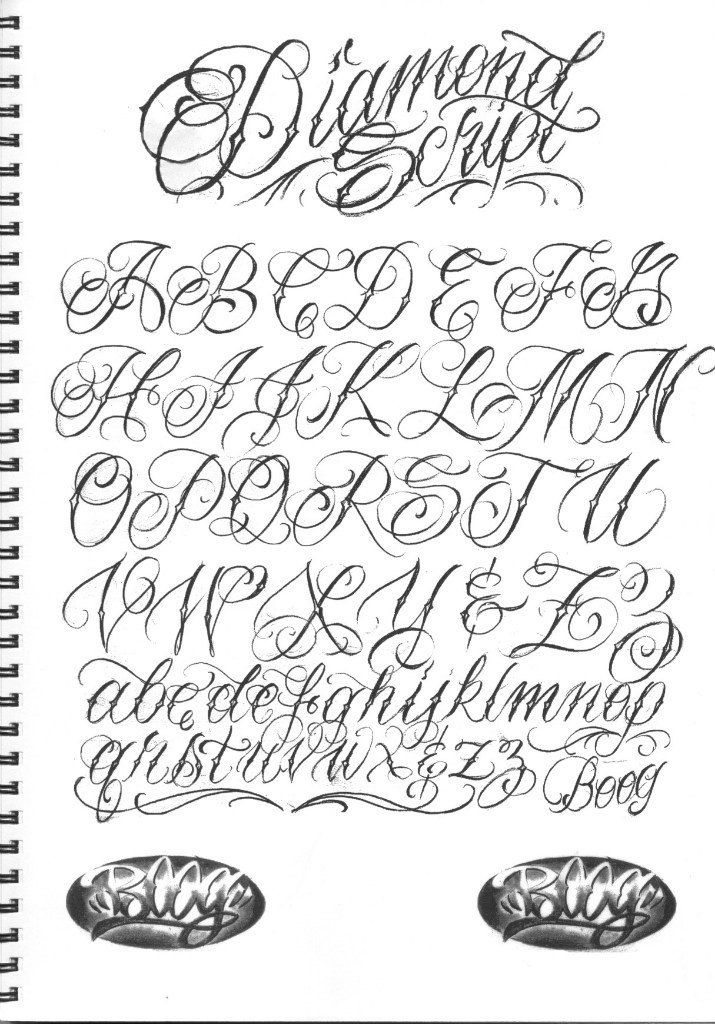 Diamond
Script
A B C D E F G
H I J K L M N
O P Q R S T U
V W X Y & Z Z
a b c d e f g h i j k l m n o p
q r s t u v w x & z z
Boog
Boog Boog